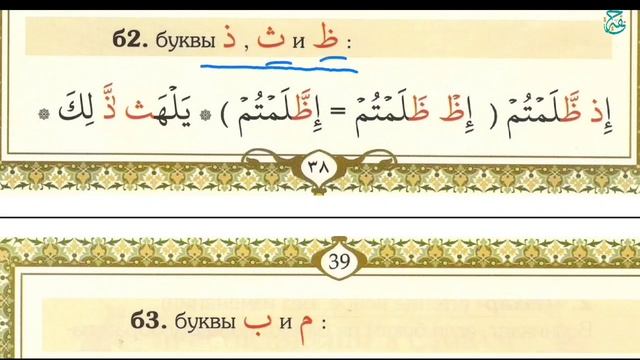 б2. буквы ذ , ث и ظ :
إِذ ظَّلَمْتُمْ ( إِظْ ظَلَمْتُمْ = إِظَّلَمْتُمْ ) * يَلْهَث ذَّ لِكَ *
٣٨
39
б3. буквы ب и م :